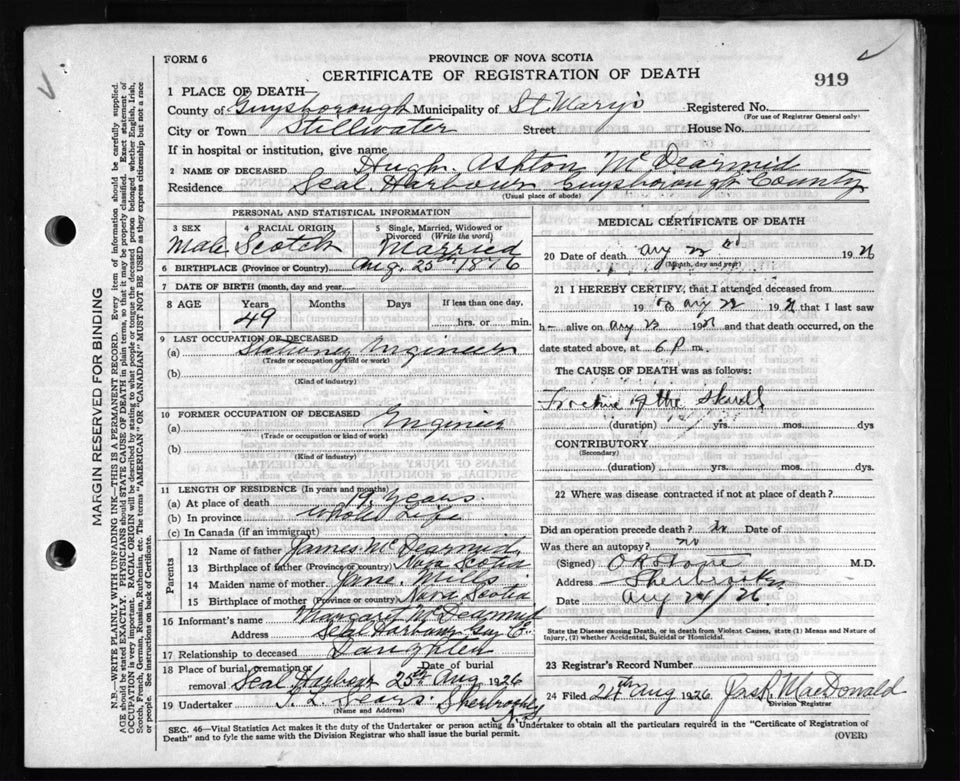 FORM 6
PROVINCE OF NOVA SCOTIA
CERTIFICATE OF REGISTRATION OF DEATH
919
1 PLACE OF DEATH
County of Guysborough Municipality of St. Mary's Registered No.
(For use of Registrar General only)
City or Town Stillwater Street House No.
If in hospital or institution, give name
2 NAME OF DECEASED Hugh Ashton McDearmid
Residence Seal Harbour Guysborough County
(Usual place of abode)
PERSONAL AND STATISTICAL INFORMATION
3 SEX 4 RACIAL ORIGIN 5 Single, Married, Widowed or Divorced (Write the word)
Male Scotch Married
6 BIRTHPLACE (Province or Country) Aug. 25th 1876
7 DATE OF BIRTH (month, day and year)
8 AGE Years Months Days If less than one day,
49 hrs. or min.
9 LAST OCCUPATION OF DECEASED
(a) Stationey Engineer
(Trade or occupation or kind of work)
(b)
(Kind of industry)
10 FORMER OCCUPATION OF DECEASED
(a) Engineer
(Trade or occupation or kind of work)
(b)
(Kind of industry)
11 LENGTH OF RESIDENCE (In years and months)
(a) At place of death 19 Years.
(b) In province Whole Life
(c) In Canada (if an immigrant)
Parents
12 Name of father James McDearmid
13 Birthplace of father (Province or country) Nova Scotia
14 Maiden name of mother Jane Mills
15 Birthplace of mother (Province or country) Nova Scotia
16 Informant's name Margary McDearmid
Address Seal Harbour Guy
17 Relationship to deceased Daughter
18 Place of burial, cremation or removal Seal Harbour Date of burial 25th Aug 1926
19 Undertaker Sears Sherbrooke N.S.
(Name and Address)
MEDICAL CERTIFICATE OF DEATH
20 Date of death Aug 1926
(Month, day and year)
21 I HEREBY CERTIFY, that I attended deceased from
19 to Aug 19 that I last saw
h alive on Aug 19 and that death occurred, on
date stated above, at 6 P m.
The CAUSE OF DEATH was as follows:
Fracture of the Skull
(duration) yrs. mos. dys
CONTRIBUTORY
(Secondary)
(duration) yrs. mos. dys.
22 Where was disease contracted if not at place of death?
Did an operation precede death? No Date of
Was there an autopsy? no
(Signed) M.D.
Address Sherbrooke
Date Aug 24/26.
State the Disease causing Death, or in death from Violent Causes, state (1) Means and Nature of Injury, (2) whether Accidental, Suicidal or Homicidal.
23 Registrar's Record Number
24 Filed 24th Aug 1926 MacDonald
Division Registrar
SEC. 46—Vital Statistics Act makes it the duty of the Undertaker or person acting as Undertaker to obtain all the particulars required in the "Certificate of Registration of
Death" and to fyle the same with the Division Registrar who shall issue the burial permit.
(OVER)
MARGIN RESERVED FOR BINDING
N.B.—WRITE PLAINLY WITH UNFADING INK—THIS IS A PERMANENT RECORD. Every item of information should be carefully supplied.
AGE should be stated EXACTLY. PHYSICIANS should STATE CAUSE OF DEATH in plain terms, so that it may be properly classified. Exact statement of
OCCUPATION is very important. RACIAL ORIGIN will be described by stating to what people or tongue the deceased person belonged whether English, Irish,
Scotch, French, German, Russian, Ruthenian, etc. The terms "AMERICAN" OR "CANADIAN" MUST NOT BE USED as they express citizenship but not a race
or people. See instructions on back of Certificate.